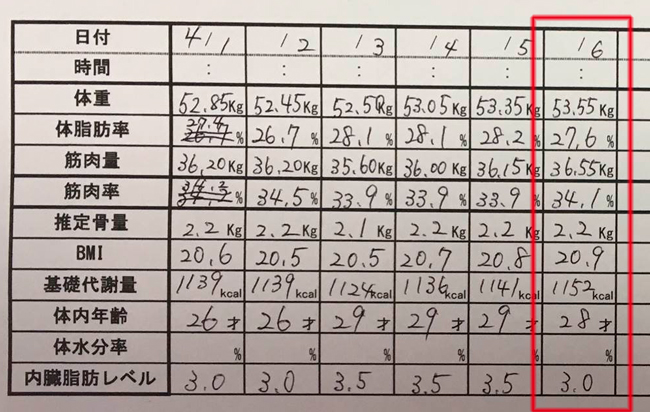 日付 4/1 /2 /3 /4 /5 /6
時間 : : : : : :
体重 52.85Kg 52.45Kg 52.50Kg 53.05Kg 53.35Kg 53.55Kg
体脂肪率 27.4 % 26.7% 28.1% 28.1% 28.2% 27.6%
筋肉量 36.20Kg 36.20Kg 35.60Kg 36.00Kg 36.15Kg 36.55Kg
筋肉率 % 34.5% 33.9% 33.9% 33.9% 34.1%
推定骨量 2.2Kg 2.2Kg 2.1Kg 2.2Kg 2.2Kg 2.2Kg
BMI 20.6 20.5 20.5 20.7 20.8 20.9
基礎代謝量 1139kcal 1139kcal 1124kcal 1136kcal 1141kcal 1152kcal
体内年齢 26才 26才 29才 29才 29才 28才
体水分率 % % % % % %
内臓脂肪レベル 3.0 3.0 3.5 3.5 3.5 3.0